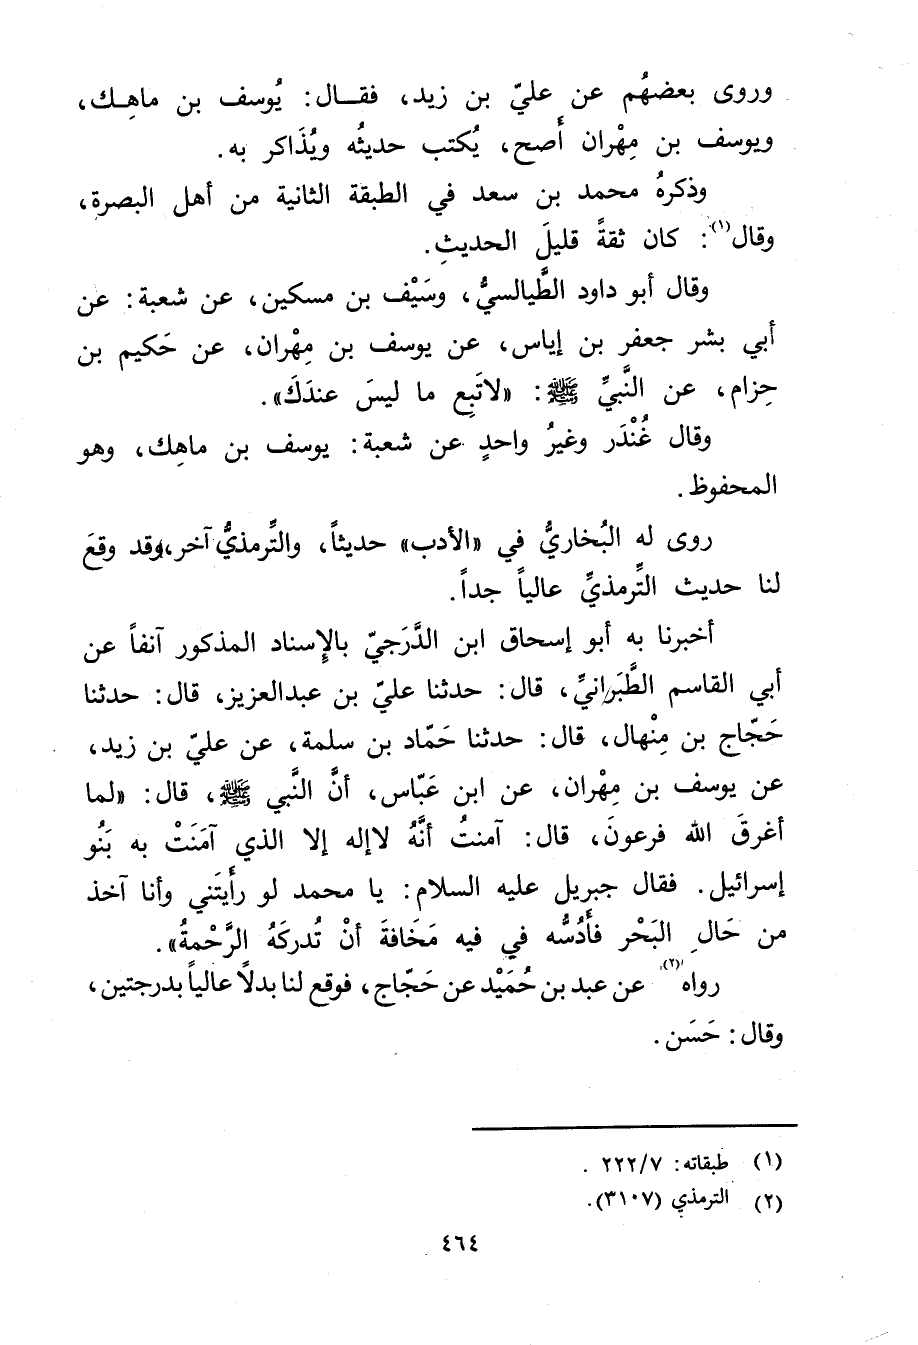 وروى بعضهُم عن عليّ بن زيد، فقــال: يُوسف بن ماهـك،
ويوسف بن مِهْران أَصح، يُكتب حديثُه ويُذَاكر به.
وذكرهُ محمد بن سعد في الطبقة الثانية من أهل البصرة،
وقال(١): كان ثقةً قليلَ الحديثِ.
وقال أبو داود الطَّيالسيُّ، وسَيْف بن مسكين، عن شعبة: عن
أبي بشر جعفر بن إياس، عن يوسف بن مِهْران، عن حَكيم بن
حِزام، عن النَّبيِّ ﷺ: «لاتَبِع ما ليسَ عندَكَ».
وقال غُنْدَر وغيرُ واحدٍ عن شعبة: يوسف بن ماهِك، وهو
المحفوظ.
روى له البُخاريُّ في «الأدب» حديثاً، والتِّرمذيُّ آخر، وقد وقعَ
لنا حديث التِّرمذيِّ عالياً جداً.
أخبرنا به أبو إسحاق ابن الدَّرَجيّ بالإِسناد المذكور آنفاً عن
أبي القاسم الطَّبَرانيِّ، قال: حدثنا عليّ بن عبدالعزيز، قال: حدثنا
حَجّاج بن مِنْهال، قال: حدثنا حَمّاد بن سلمة، عن عليّ بن زيد،
عن يوسف بن مِهْران، عن ابن عَبّاس، أنَّ النَّبي ﷺ، قال: «لما
أغرقَ الله فرعونَ، قال: آمنتُ أنَّهُ لاإله إلا الذي آمَنَتْ به بَنُو
إسرائيل. فقال جبريل عليه السلام: يا محمد لو رأَيتَني وأنا آخذ
من حَال البَحْر فأَدُسُّه في فيه مَخَافةَ أنْ تُدركَهُ الرَّحْمةُ».
رواه(٢) عن عبد بن حُمَيْد عن حَجّاج، فوقع لنا بدلاً عالياً بدرجتين،
وقال: حَسَن.
(١) طبقاته: ٢٢٢/٧ .
(٢) الترمذي (٣١٠٧).
٤٦٤